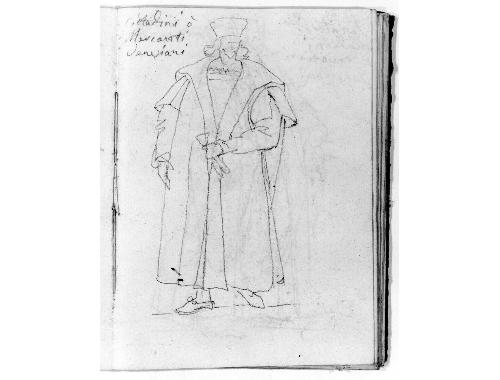 Cittadini ò
Mercanti
Veneziani